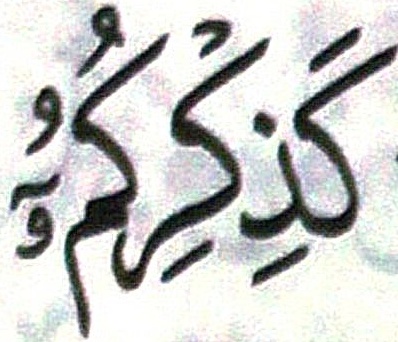 كَذِكْرِكُمُۥٓ